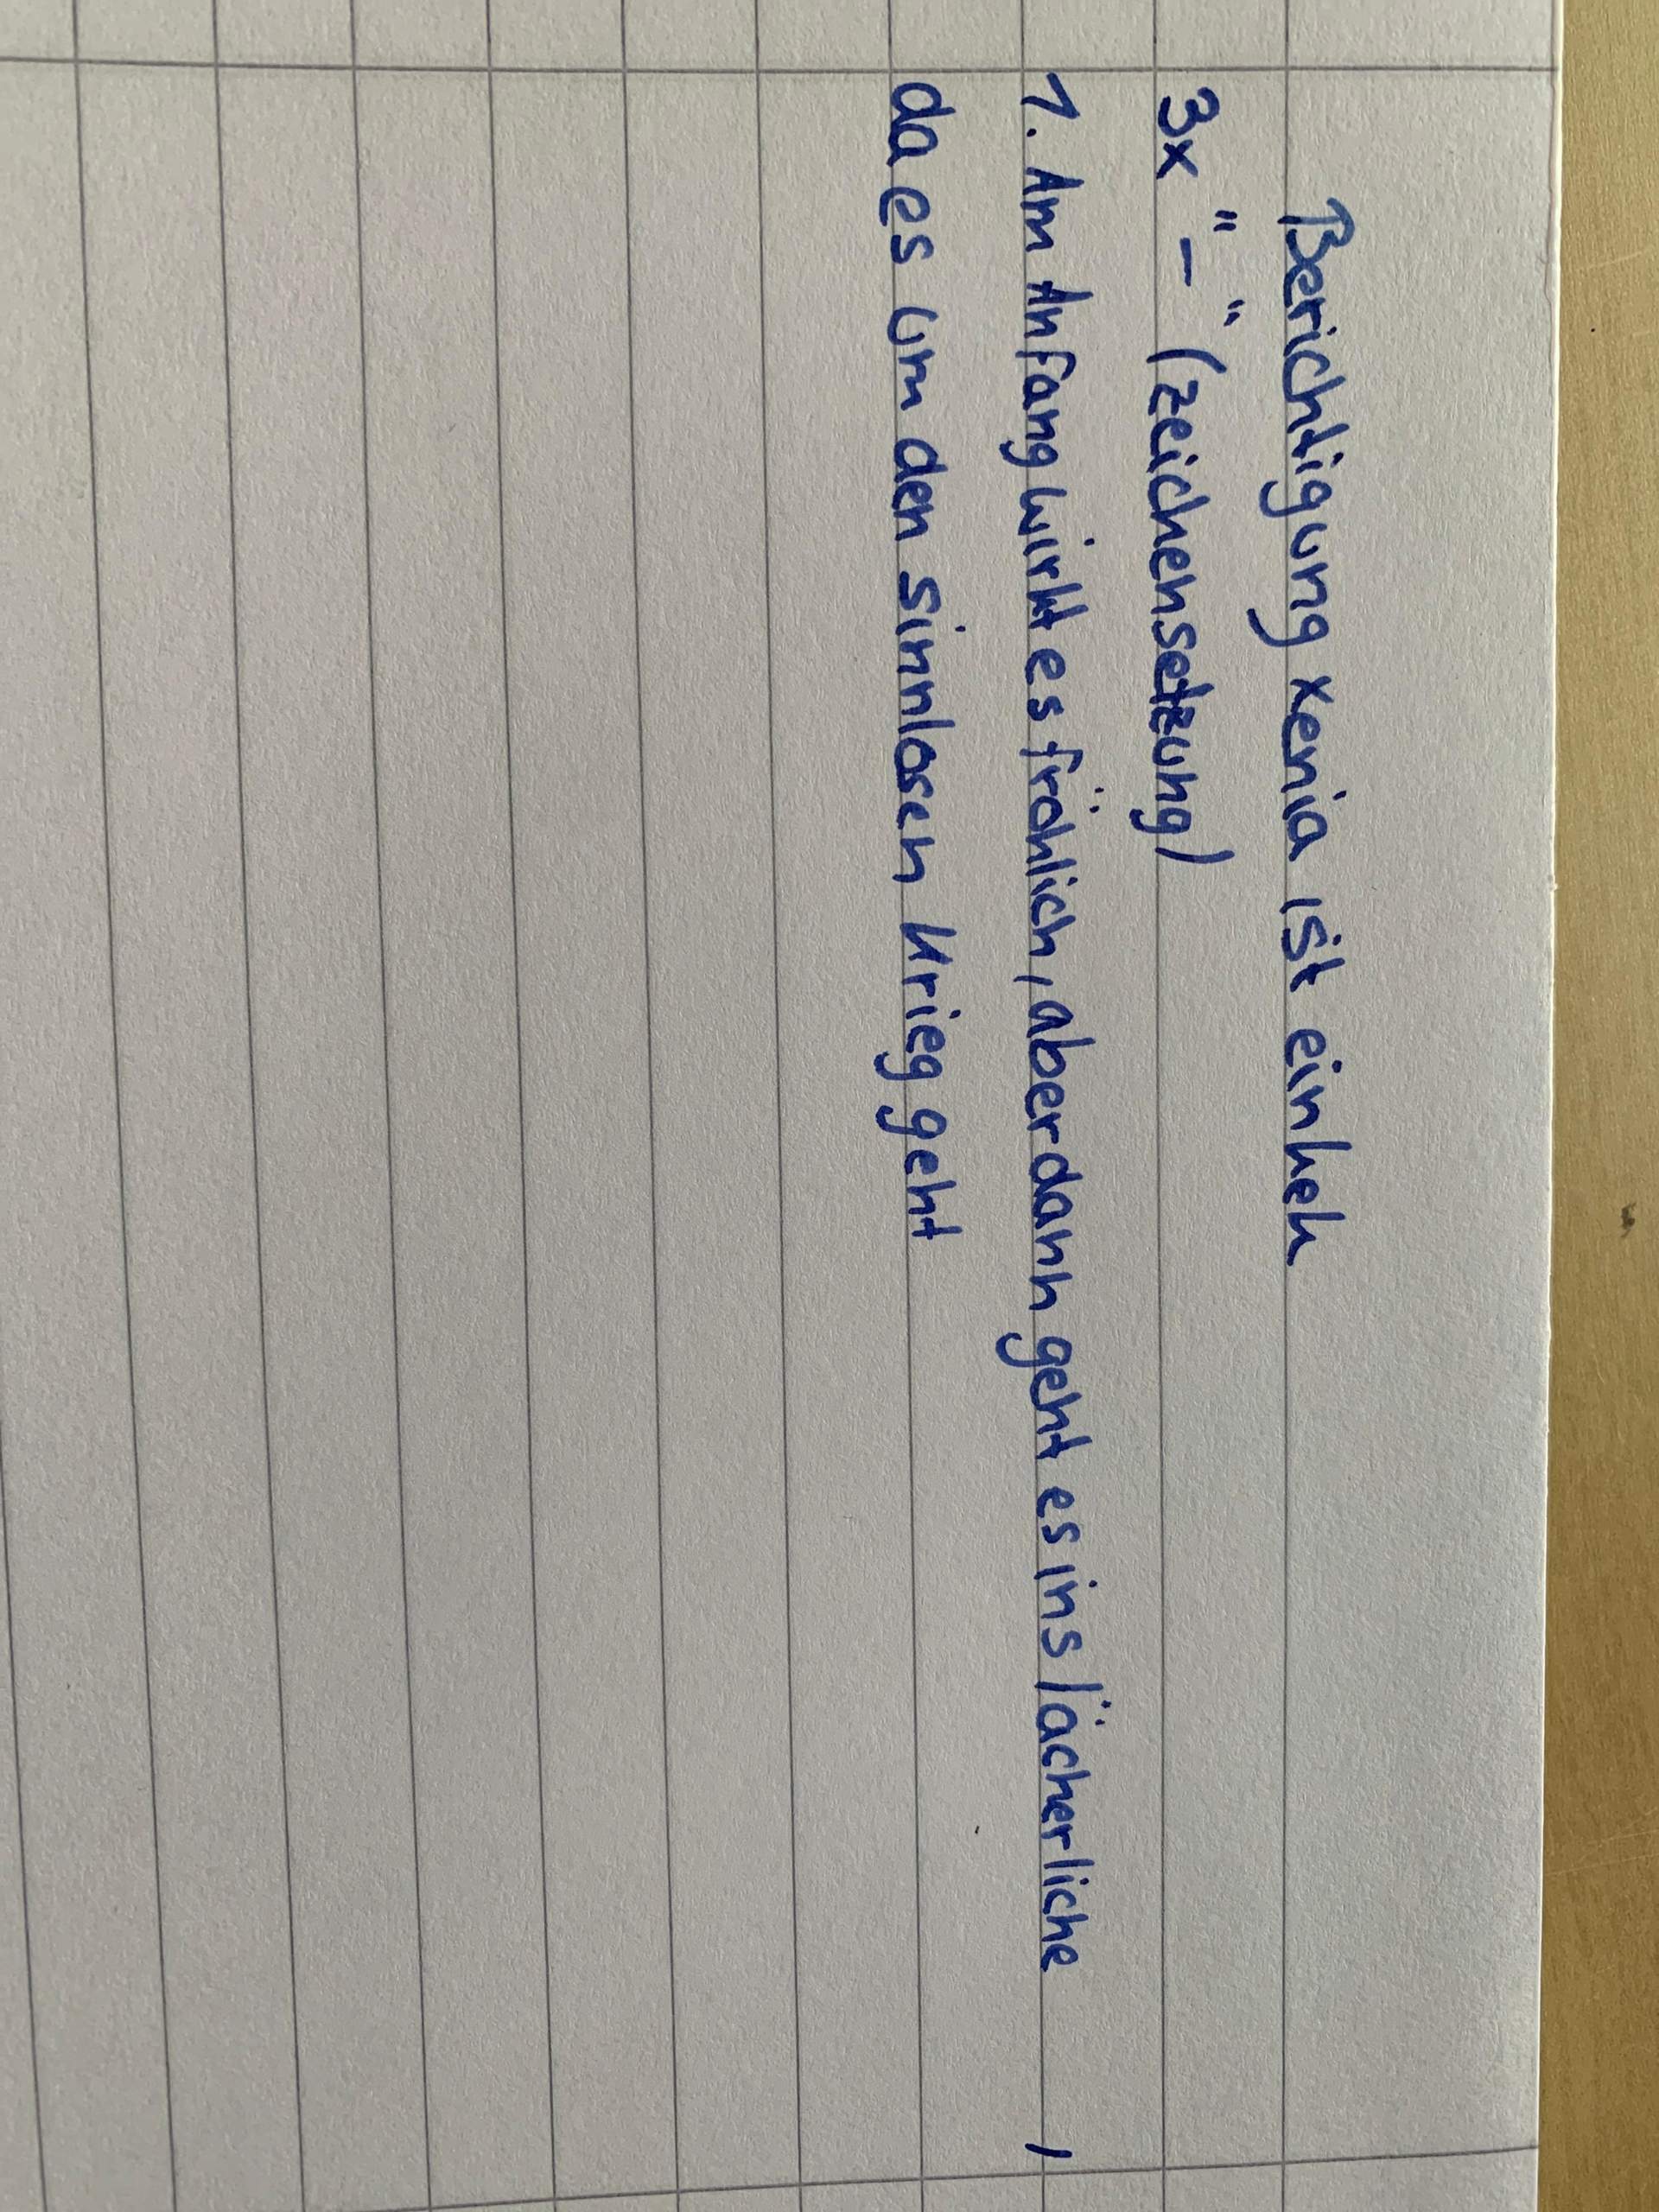 Berichtigung xenia ist einkek
3x "-" (zeichensetzung)
1. Am Anfang wirkt es fröhlich, aber dann geht es ins lächerliche ,
da es um den sinnlosen Krieg geht